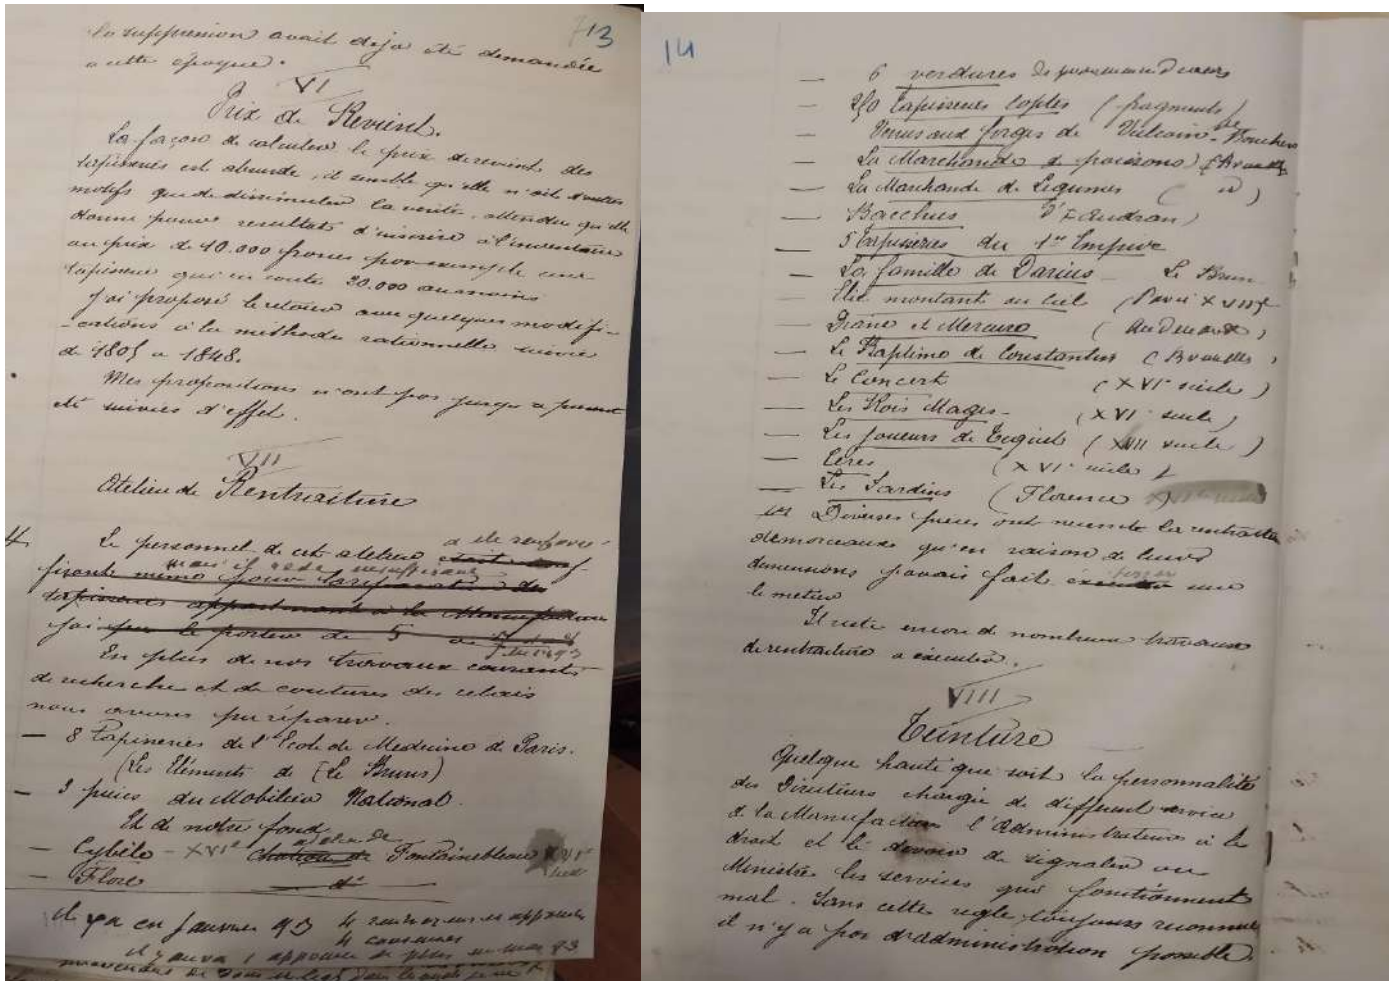 713
la suppression avait deja été demandée
a cette époque.
VI
Prix de Revient.
La façon de calculer le prix de revient des
tapisseries est absurde, il semble qu'elle n'ait d'autres
motifs que de dissimuler la verité, attendu qu'elle
donne pour resultats d'inscrire à l'inventaire
au prix de 10.000 francs par exemple une
tapisserie qui en coute 20.000 au moins
J'ai proposé le retour avec quelques modifi-
-cations à la methode rationnelle suivie
de 1805 a 1848.
Mes propositions n'ont pas jusqu'a present
été suivies d'effet.
VII
Atelier de Rentraiture
4
Le personnel de cet atelier a été renforcé
mais il reste insuffisant
fisant même pour la reparation des
tapisseries appartenant à la Manufacture
j'ai pu le porter de 5 a
En plus de nos travaux courants
de recherche et de coutures des relais
nous avons pu réparer.
— 8 Tapisseries de l'Ecole de Medecine de Paris.
(Les Eléments de Le Brun)
— 3 pièces du Mobilier National.
Et de notre fond
atelier de
— Cybèle - XVIe chateau de Fontainebleau XVIe
— Flore d°
il y a en Janvier 93 4 rentrayeurs et apprentis
4 couseuses
il y aura 1 apprentie de plus en Mars 93
14
— 6 verdures de provenances diverses
— 250 Tapisseries Coptes (fragments)
— Venus aux forges de Vulcain - de Boucher
— La Marchande de poissons (Bruxelles
— La Marchande de Legumes ( d )
— Bacchus d'Audran)
— 5 Tapisseries du 1er Empire
— La famille de Darius Le Brun
— Elie montant au Ciel (Paris XVIIe
— Diane et Mercure (Audenarde)
— Le Baptême de Constantin (Bruxelles)
— Le Concert (XVIe siècle)
— Les Rois Mages - (XVIe siecle)
— Les Joueurs de (XVII siecle)
— Cérès (XVIe siècle)
— Les Jardins (Florence )
Diverses pièces ont necessité la rentraiture
de morceaux qu'en raison de leurs
dimensions j'avais fait executer sur
le metier
Il reste encore de nombreux travaux
de rentraiture a éxécuter.
VIII
Teinture
Quelque haute que soit la personnalité
des Directeurs chargés de différent service
de la Manufacture l'Administrateur à le
droit et le devoir de signaler au
Ministre les services qui fonctionnent
mal. Sans cette règle toujours reconnue
il n'y a pas d'administration possible.